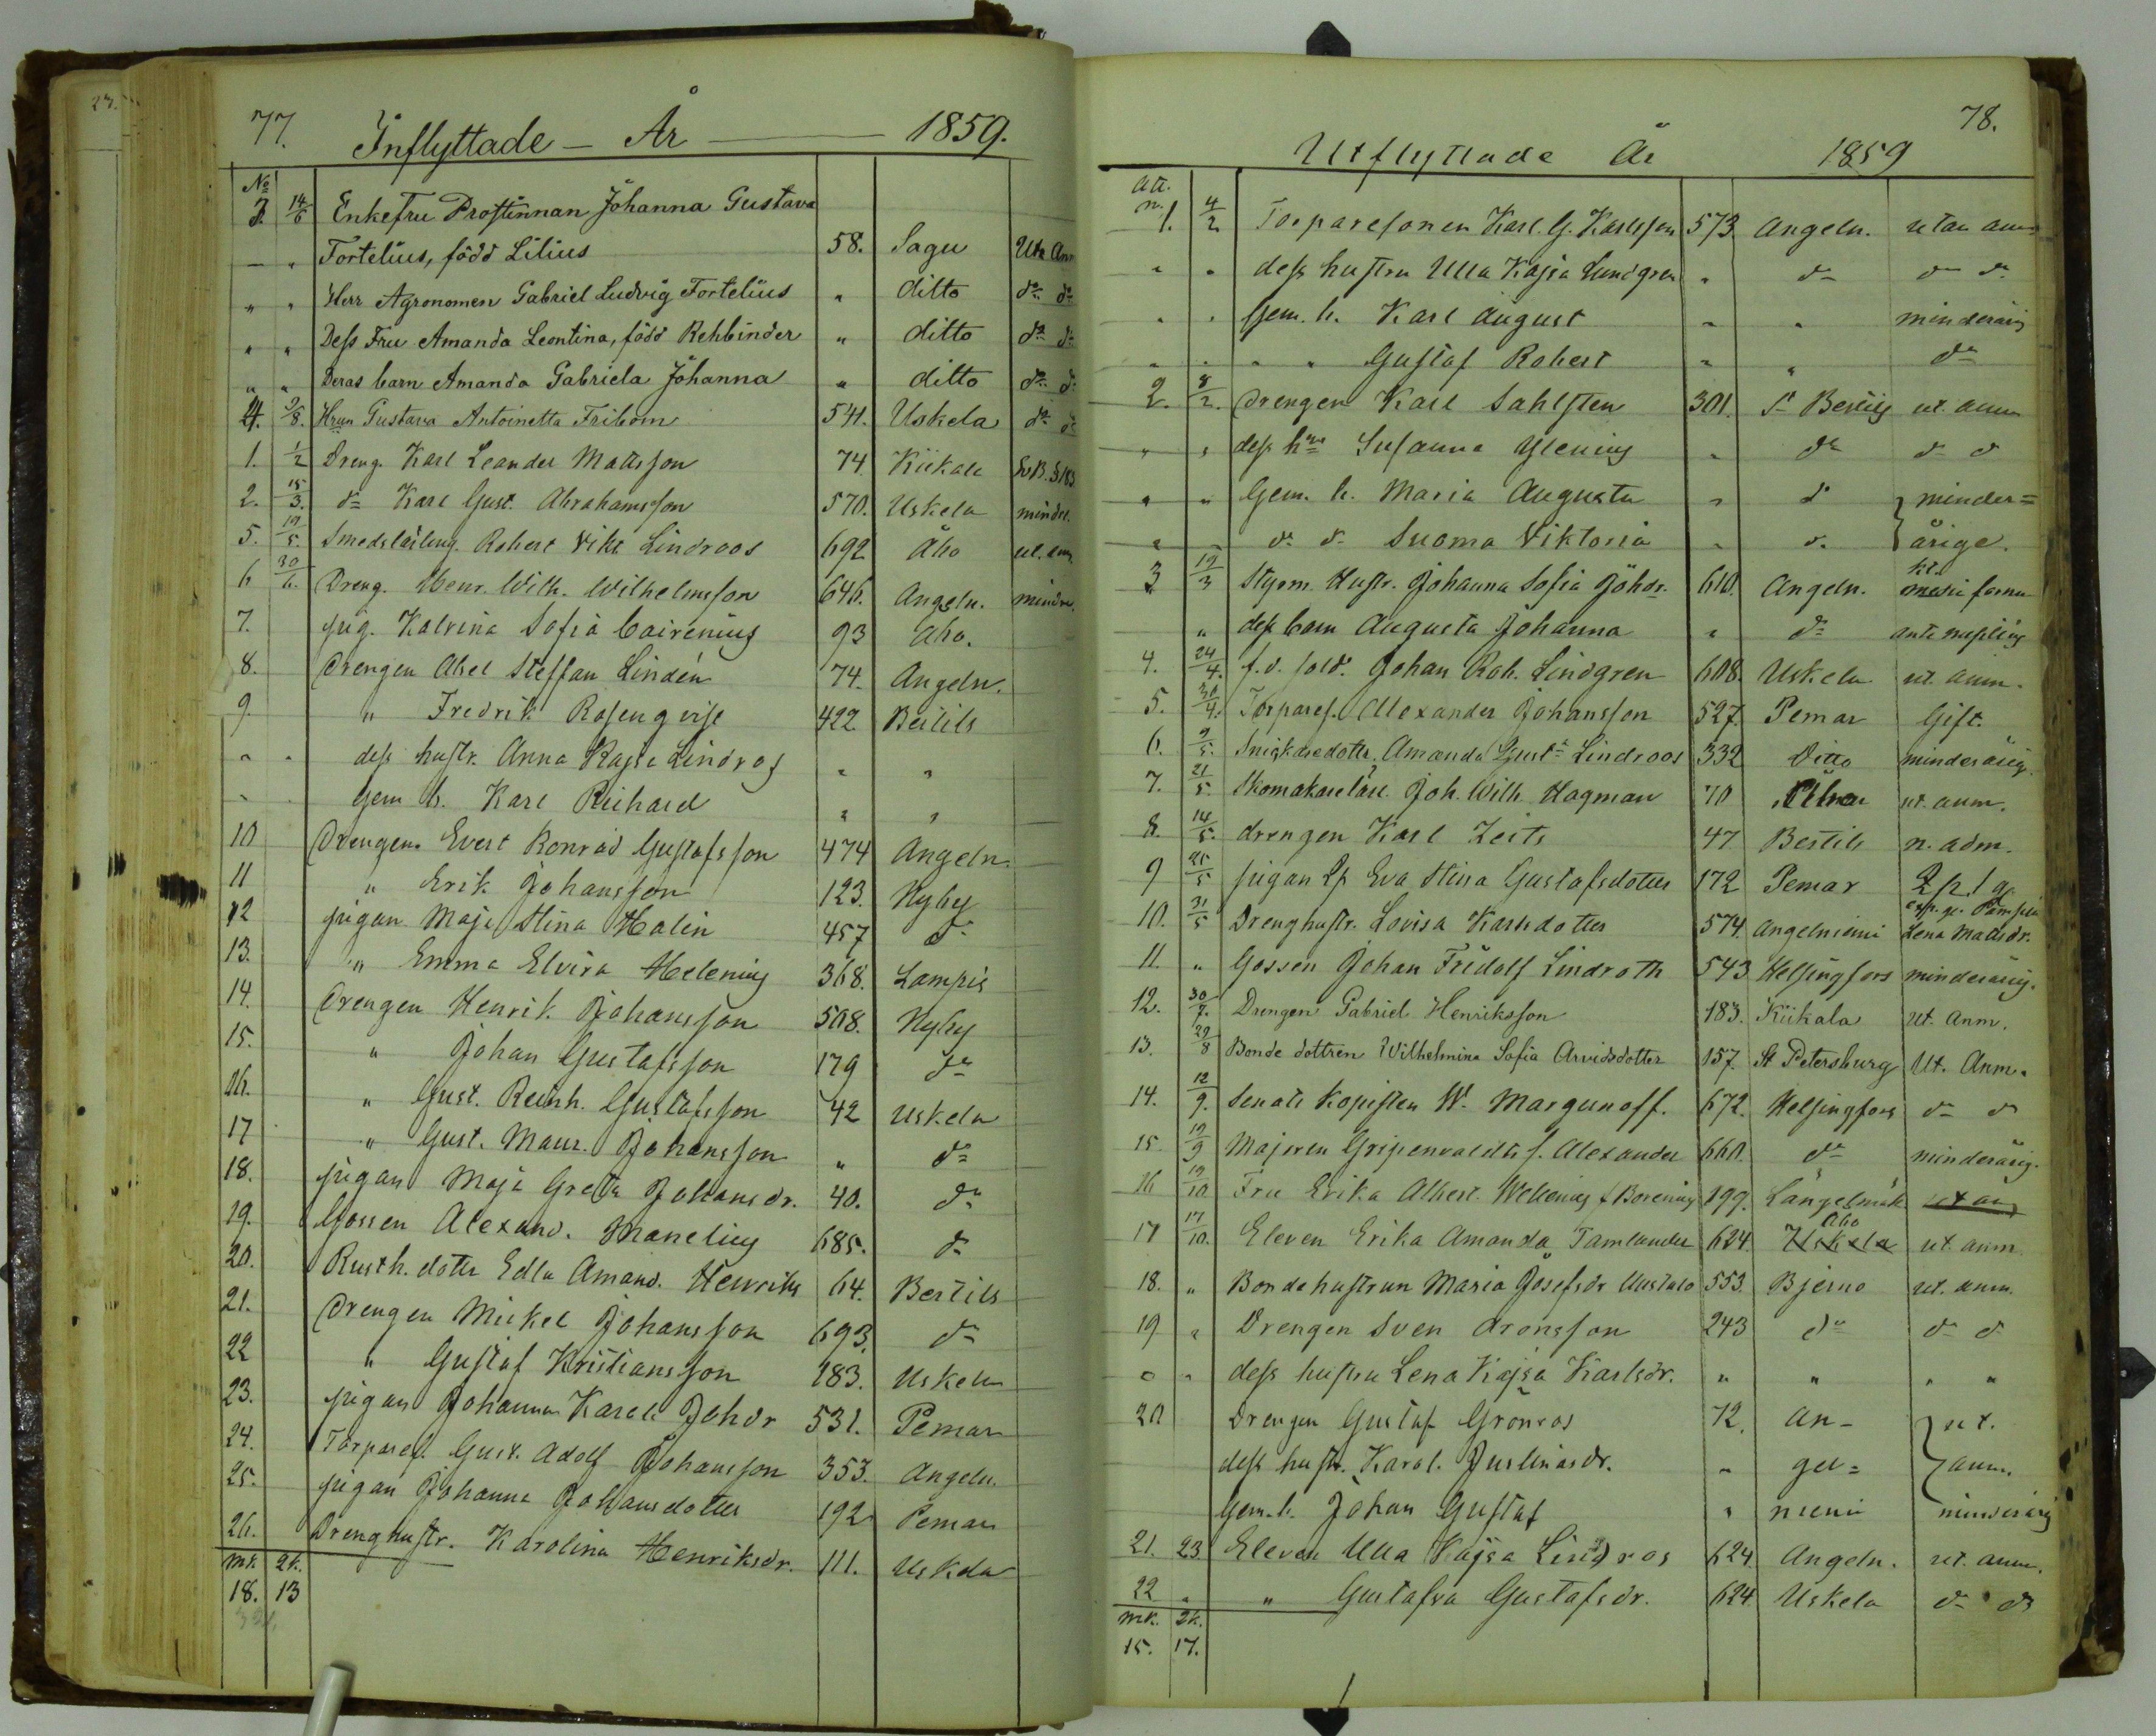 23.
77. Inflyttade — År — 1859.
No
3. 14/6 Enkefru Prostinnan Johanna Gustava
— " Fortelius, född Lilius 58. Sagu Utn Anm
" " Herr Agronomen Gabriel Ludvig Fortelius " ditto do do
" " Dess Fru Amanda Leontina, född Rehbinder " ditto do do
" " Deras barn Amanda Gabriela Johanna " ditto do do
4. 9/8. Hrun Gustava Antoinetta Fribom 541. Uskela do do
1. 1/2 Dreng. Karl Leander Mattsson 74. Kiikala
2. 15/3. do Karl Gust. Abrahamsson 570. Uskela minder.
5. 19/5. Smedslärling. Robert Vikt Lindroos 692 Åbo ut. anm
6 30/6. Dreng. Henr. Wilh. Wilhelmsson 646. Angeln. mindre.
7. pig. Katrina Sofia Cairenius 93 Åbo.
8. Drengen Abel Steffan Lindén 74. Angeln.
9. " Fredrik Rosenqvist 422 Bertils
" " dess hustr. Anna Kajsa Lindros " "
" gem b. Karl Richard " "
10 Drengen Evert Konrad Gustafsson 474 Angeln.
11 " Erik Johansson 123. Nyby
12 pigan Maja Stina Malin 457 do
13. " Emma Elvira Helenius 368. Lampis
14. Drengen Henrik Johansson 508. Nyby
15. " Johan Gustafsson 179 do
16. " Gust. Reinh. Gustafsson 42 Uskela
17 " Gust. Maur. Johansson " do
18. pigan Maja Greta Johansdr. 40. do
19. Gossen Alexand. Manelius 685. do
20. Rusth. dottr Edla Amand. Henriks 64. Bertils
21. Drengen Mickel Johansson 693. do
22 " Gustaf Kristiansson 183. Uskela
23. pigan Johanna Karol. Johdr 531. Pemar
24. Torpares. Gust. Adolf Johansson 353. Angeln.
25. pigan Johanna Johansdotter 192 Pemar
26. Drenghustr. Karolina Henriksdr. 111. Uskela
mk. qk.
18. 13
78.
Utflyttade År 1859
Att.
n. 1. 4/2 Torparesonen Karl G. Karlsson 573 Angeln. utan anm
" " dess hustru Ulla Kajsa Lundgren " do do do
" " Gem. b. Karl August " " minderårig
" " " " Gustaf Robert " " do
2. 8/2. Drengen Karl Sahlsten 301. St Bertils ut. anm
" " dess hru Susanna Ylenius " do do do
" " Gem. b. Maria Augusta " do minder=
" " do do Suoma Viktoria " do årige.
3 19/3 Styrm. Hustr. Johanna Sofia Johdr. 610. Angeln.
" dess barn Augusta Johanna " do
4. 24/4. f.d. sold. Johan Rob. Lindgren 608. Uskela ut. anm.
5. 30/4. Torpares. Alexander Johansson 527. Pemar Gift.
6. 9/5. Snickaredottr. Amanda Gusta Lindroos 332 Ditto minderårig.
7. 21/5. Skomakarelärl. Joh. Wilh. Hagman 70 ut. anm.
8. 14/5. drengen Karl Zeits 47 Bertils n. adm.
9 25/5 pigan Eva Stina Gustafsdotter 172 Pemar
10. 31/5 Drenghustr. Lovisa Karlsdotter 574. Angelniemi Lena Mattsdr.
11. " Gossen Johan Fridolf Lindroth 543 Helsingfors minderårig.
12. 30/7. Drengen Gabriel Henriksson 183. Kiikala ut. Anm.
13. 29/8 Bonde dottren Wilhelmina Sofia Arvidsdotter 157. St Petersburg Ut. Anm.
14. 12/9. Senats Kopisten W. Margunoff. 672. Helsingfors do do
15. 19/9 Majoren Gripenvaldts s. Alexander 660. do minderårig.
16 19/10 Fru Erika Albert. Wellenius f Borenius 199. Längelmäk ut an
17 17/10. Eleven Erika Amanda Tamlander 624. Uskela Åbo ut. anm
18. " Bondehustrun Maria Josefsdr Uustalo 553. Bjerno ut. anm.
19 " Drengen Sven Aronsson 243 do do do
" " dess hustru Lena Kajsa Karlsdr. " " " "
20 Drengen Gustaf Grönroos 72. An- ut.
dess hustr. Karol. Justinasdr. " gel= anm.
Gem. b. Johan Gustaf " niemi minderårig
21. 23. Eleven Ulla Kajsa Lindros 624. Angeln. ut. anm.
22 " " Gustafva Gustafsdr. 624. Uskela do do
mk. qk.
15. 17.